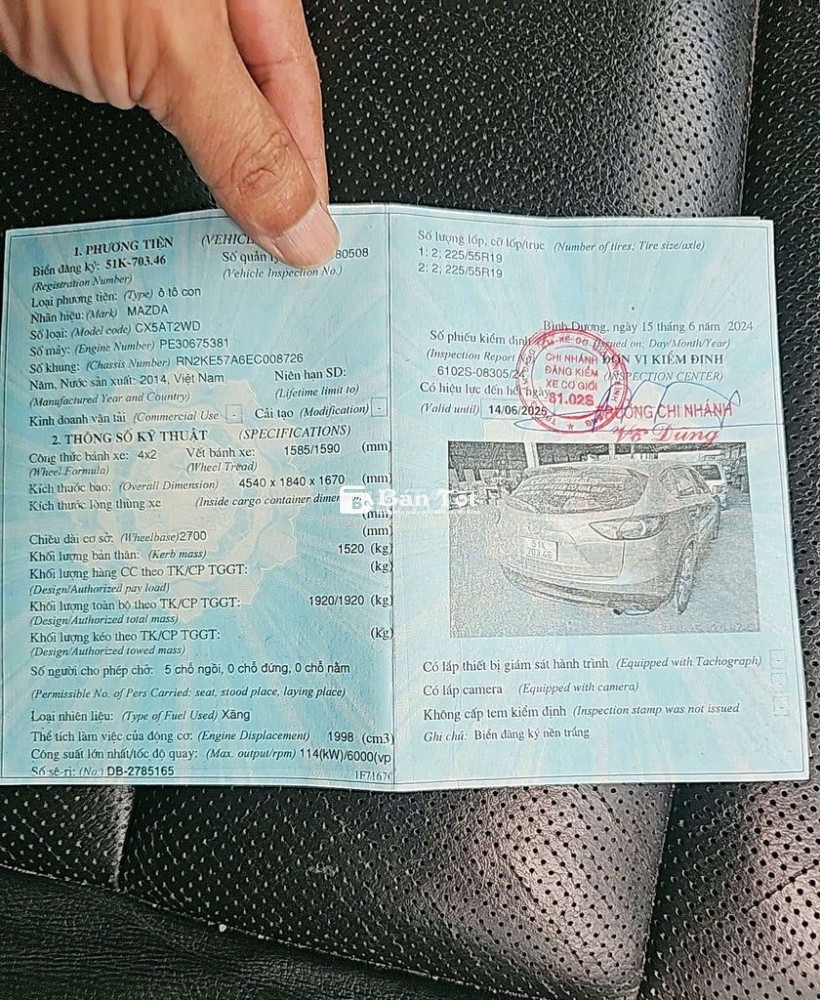 1. PHƯƠNG TIỆN
Biển đăng ký: 51K-703.46 Số quản lý 80508
(Registration Number) (Vehicle Inspection No.)
Loại phương tiện: (Type) ô tô con
Nhãn hiệu: (Mark) MAZDA
Số loại: (Model code) CX5AT2WD
Số máy: (Engine Number) PE30675381
Số khung: (Chassis Number) RN2KE57A6EC008726
Năm, Nước sản xuất: 2014, Việt Nam Niên hạn SD:
(Manufactured Year and Country) (Lifetime limit to)
Kinh doanh vận tải (Commercial Use - Cải tạo (Modification) -
2. THÔNG SỐ KỸ THUẬT (SPECIFICATIONS)
Công thức bánh xe: 4x2 Vết bánh xe: 1585/1590 (mm)
(Wheel Formula) (Wheel Tread)
Kích thước bao: (Overall Dimension) 4540 x 1840 x 1670 (mm)
Kích thước lòng thùng xe (Inside cargo container
(mm)
Chiều dài cơ sở: (Wheelbase) 2700 (mm)
Khối lượng bản thân: (Kerb mass) 1520 (kg)
Khối lượng hàng CC theo TK/CP TGGT: (kg)
(Design/Authorized pay load)
Khối lượng toàn bộ theo TK/CP TGGT: 1920/1920 (kg)
(Design/Authorized total mass)
Khối lượng kéo theo TK/CP TGGT: (kg)
(Design/Authorized towed mass)
Số người cho phép chở: 5 chỗ ngồi, 0 chỗ đứng, 0 chỗ nằm
(Permissible No. of Pers Carried: seat, stood place, laying place)
Loại nhiên liệu: (Type of Fuel Used) Xăng
Thể tích làm việc của động cơ: (Engine Displacement) 1998 (cm3)
Công suất lớn nhất/tốc độ quay: (Max. output/rpm) 114(kW)/6000(vp
Số sê-ri: (No.) DB-2785165
Số lượng lốp, cỡ lốp/trục (Number of tires; Tire size/axle)
1: 2; 225/55R19
2: 2; 225/55R19
Bình Dương, ngày 15 tháng 6 năm 2024
Số phiếu kiểm định (Issued on: Day/Month/Year)
(Inspection Report ĐƠN VỊ KIỂM ĐỊNH
6102S-08305/24 (INSPECTION CENTER)
Có hiệu lực đến hết ngày
(Valid until) 14/06/2025 TRƯỞNG CHI NHÁNH
Võ Dũng
CHI NHÁNH
ĐĂNG KIỂM
XE CƠ GIỚI
61.02S
Bán Tốt
Có lắp thiết bị giám sát hành trình (Equipped with Tachograph) -
Có lắp camera (Equipped with camera)
Không cấp tem kiểm định (Inspection stamp was not issued
Ghi chú: Biển đăng ký nền trắng